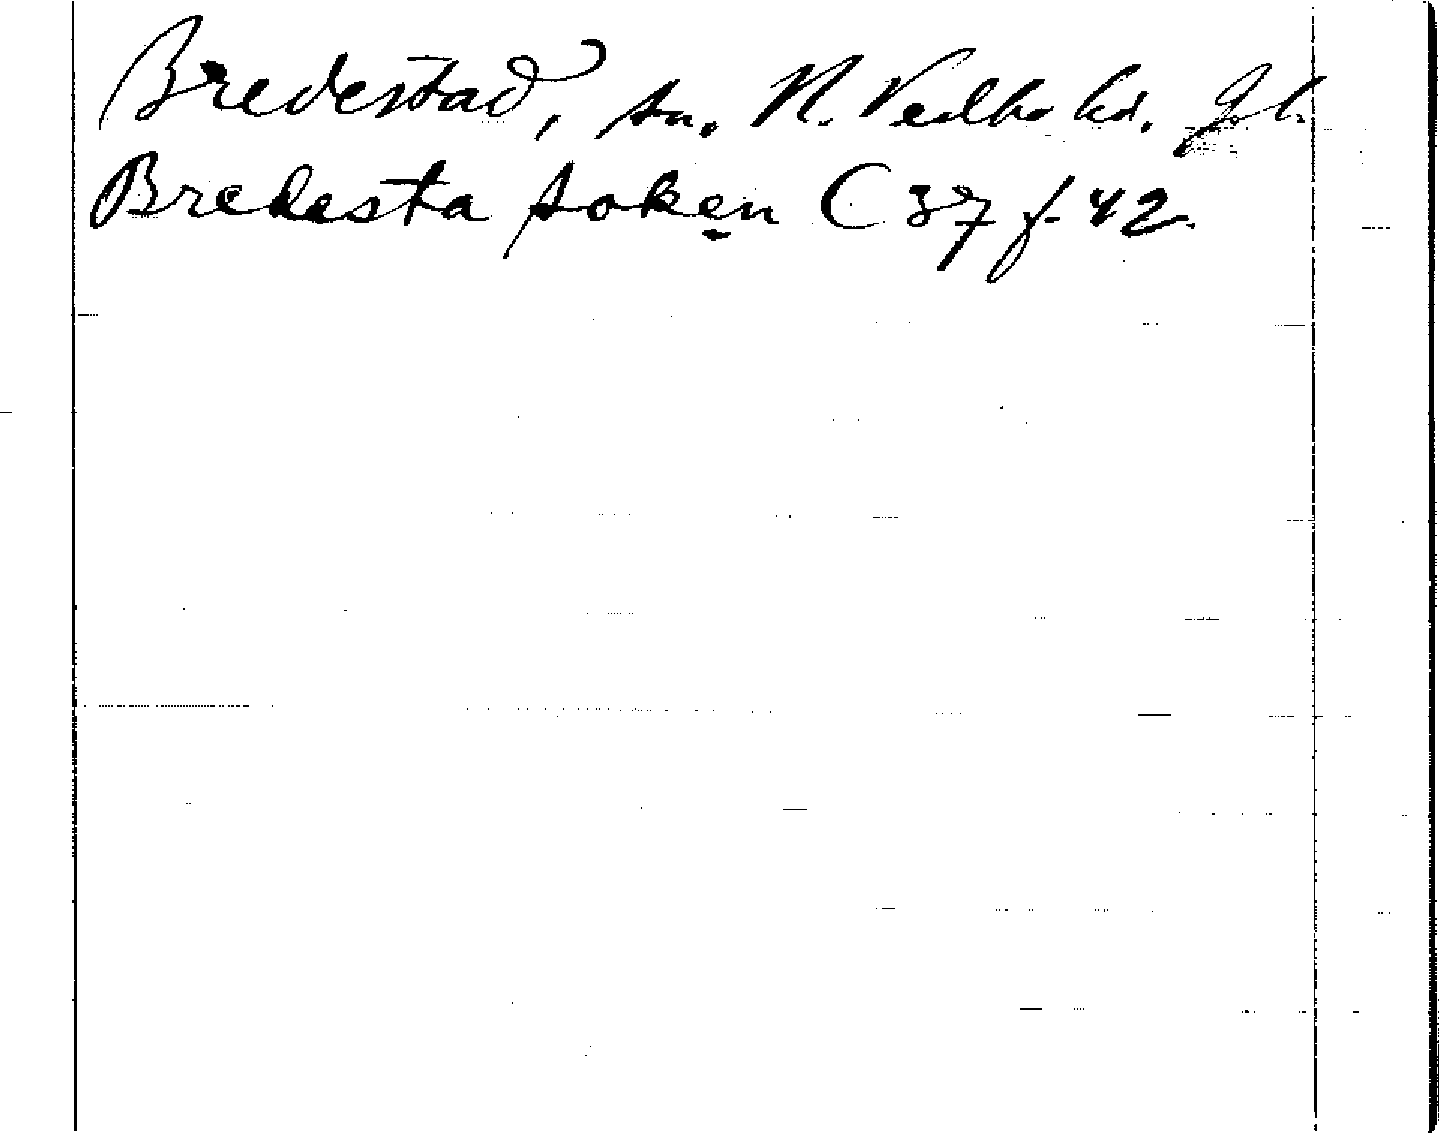 Bredestad, sn. N. Vedbo hd. Jl.
Bredesta soken C 37 f. 42.